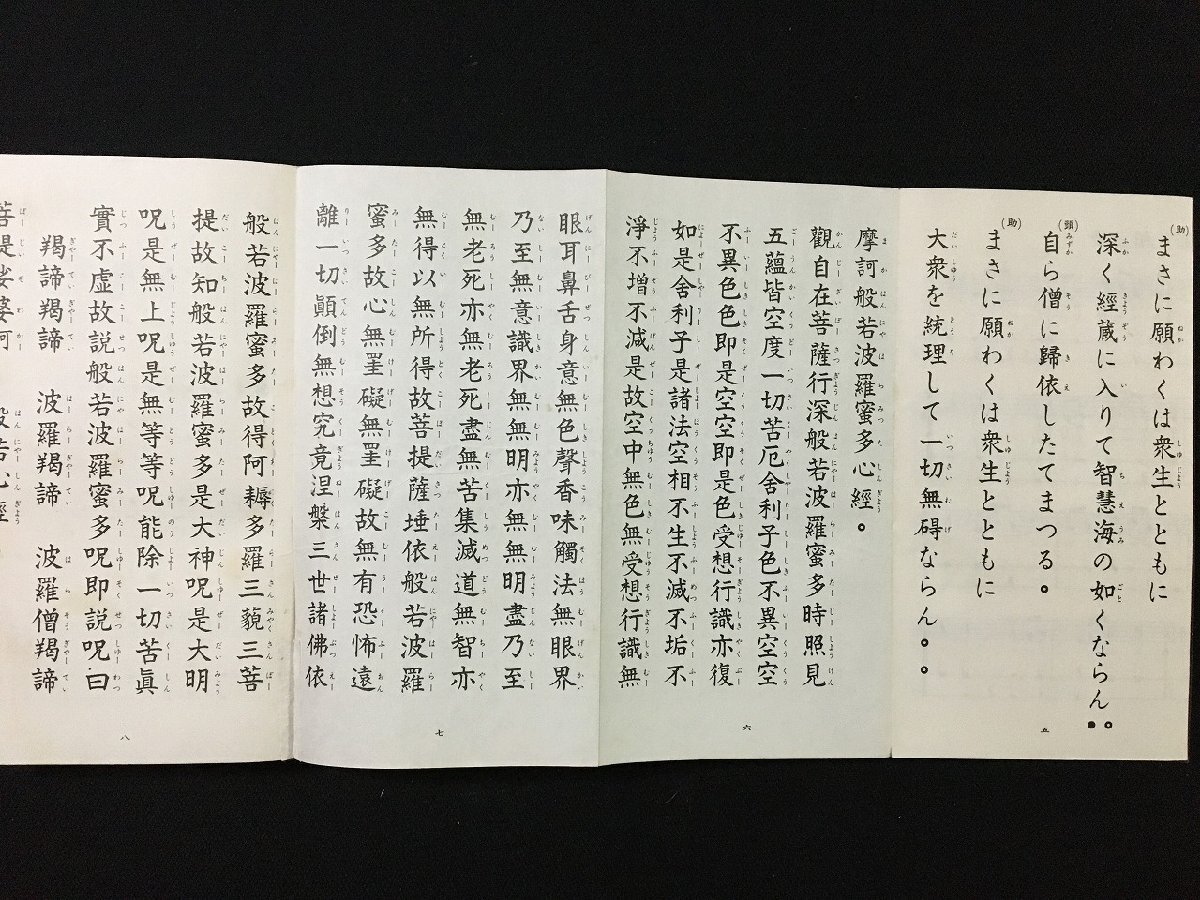 (助)
まさに願わくは衆生とともに
深く經蔵に入りて智慧海の如くならん。。
(頭)
自ら僧に歸依したてまつる。
(助)
まさに願わくは衆生とともに
大衆を統理して一切無碍ならん。。
五
摩訶般若波羅蜜多心經。
觀自在菩薩行深般若波羅蜜多時照見
五蘊皆空度一切苦厄舍利子色不異空空
不異色色即是空空即是色受想行識亦復
如是舍利子是諸法空相不生不滅不垢不
淨不增不減是故空中無色無受想行識無
六
眼耳鼻舌身意無色聲香味觸法無眼界
乃至無意識界無無明亦無無明盡乃至
無老死亦無老死盡無苦集滅道無智亦
無得以無所得故菩提薩埵依般若波羅
蜜多故心無罣礙無罣礙故無有恐怖遠
離一切顚倒無想究竟涅槃三世諸佛依
七
般若波羅蜜多故得阿耨多羅三藐三菩
提故知般若波羅蜜多是大神呪是大明
呪是無上呪是無等等呪能除一切苦眞
實不虛故説般若波羅蜜多呪即説呪曰
羯諦羯諦 波羅羯諦 波羅僧羯諦
菩提娑婆訶 般若心經
八